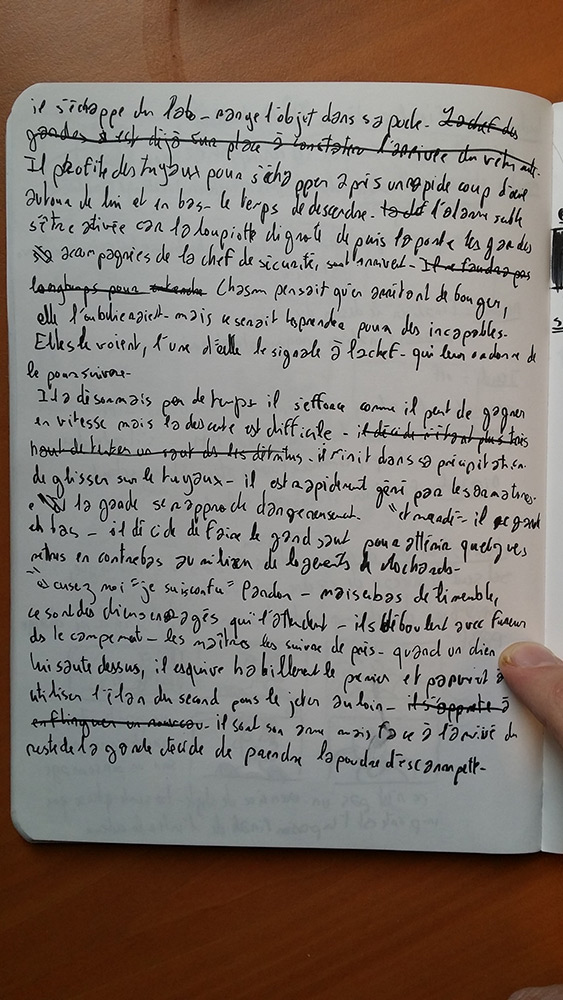 il s'échappe du labo - range l'objet dans sa poche - La chef des
gardes est déjà sur place à constater l'arrivée du
Il profite des tuyaux pour s'échapper après un rapide coup d'œil
autour de lui et en bas - le temps de descendre - la chef l'alarme
s'être activée car la loupiotte clignote depuis la porte les gardes
accompagnées de la chef de sécurité, sont arrivent - Il ne faudra pas
longtemps pour entendre Chasm pensait qu'en arrêtant de bouger,
elle l'oublieraient - mais ce serait les prendre pour des incapables -
Elles le voient, l'une d'elle le signale à la chef - qui leur ordonne de
le poursuivre -
Il a désormais peu de temps il s'efforce comme il peut de gagner
en vitesse mais la descente est difficile - il décide n'étant plus très
haut de tenter un saut ds les détritus - il finit dans sa précipitation
de glisser sur le tuyaux - il est rapidement gêné par les armatures -
la garde se rapproche dangereusement. "et merde" - il
en bas - il décide de faire le grand saut pour atterrir quelques
mètres en contrebas au milieu de logements de clochards -
"excusez moi" "je suis confu" Pardon - mais en bas de l'immeuble,
ce sont des chiens enragés qui l'attendent - ils déboulent avec fureur
ds le campement - les maîtres les suivre de près - quand un chien
lui saute dessus, il esquive habillement le premier et parvient à
utiliser l'élan du second pour le jeter au loin - il s'apprête à
enflinguer un nouveau - il sort son arme mais face à l'arrivé du
reste de la garde décide de prendre la poudre d'escampette -